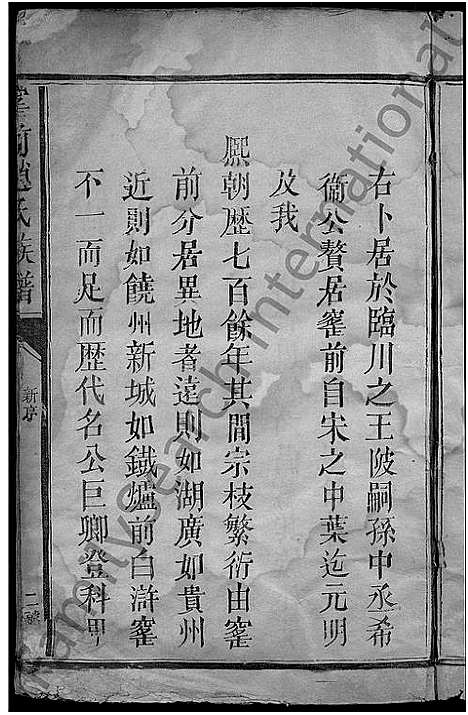 右卜居於臨川之王陂嗣孫中丞希
衞公贅居窰前自宋之中葉迄元明
及我
熙朝歷七百餘年其間宗枝繁衍由窰
前分居異地者遠則如湖廣如貴州
近則如饒州新城如鐵爐前白滸窰
不一而足而歷代名公巨卿登科甲
窰前趙氏族譜
新序
二
FamilySearch International